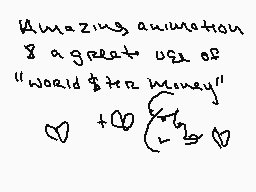 Amazing animation
& a great use of
"world $ter money"
+